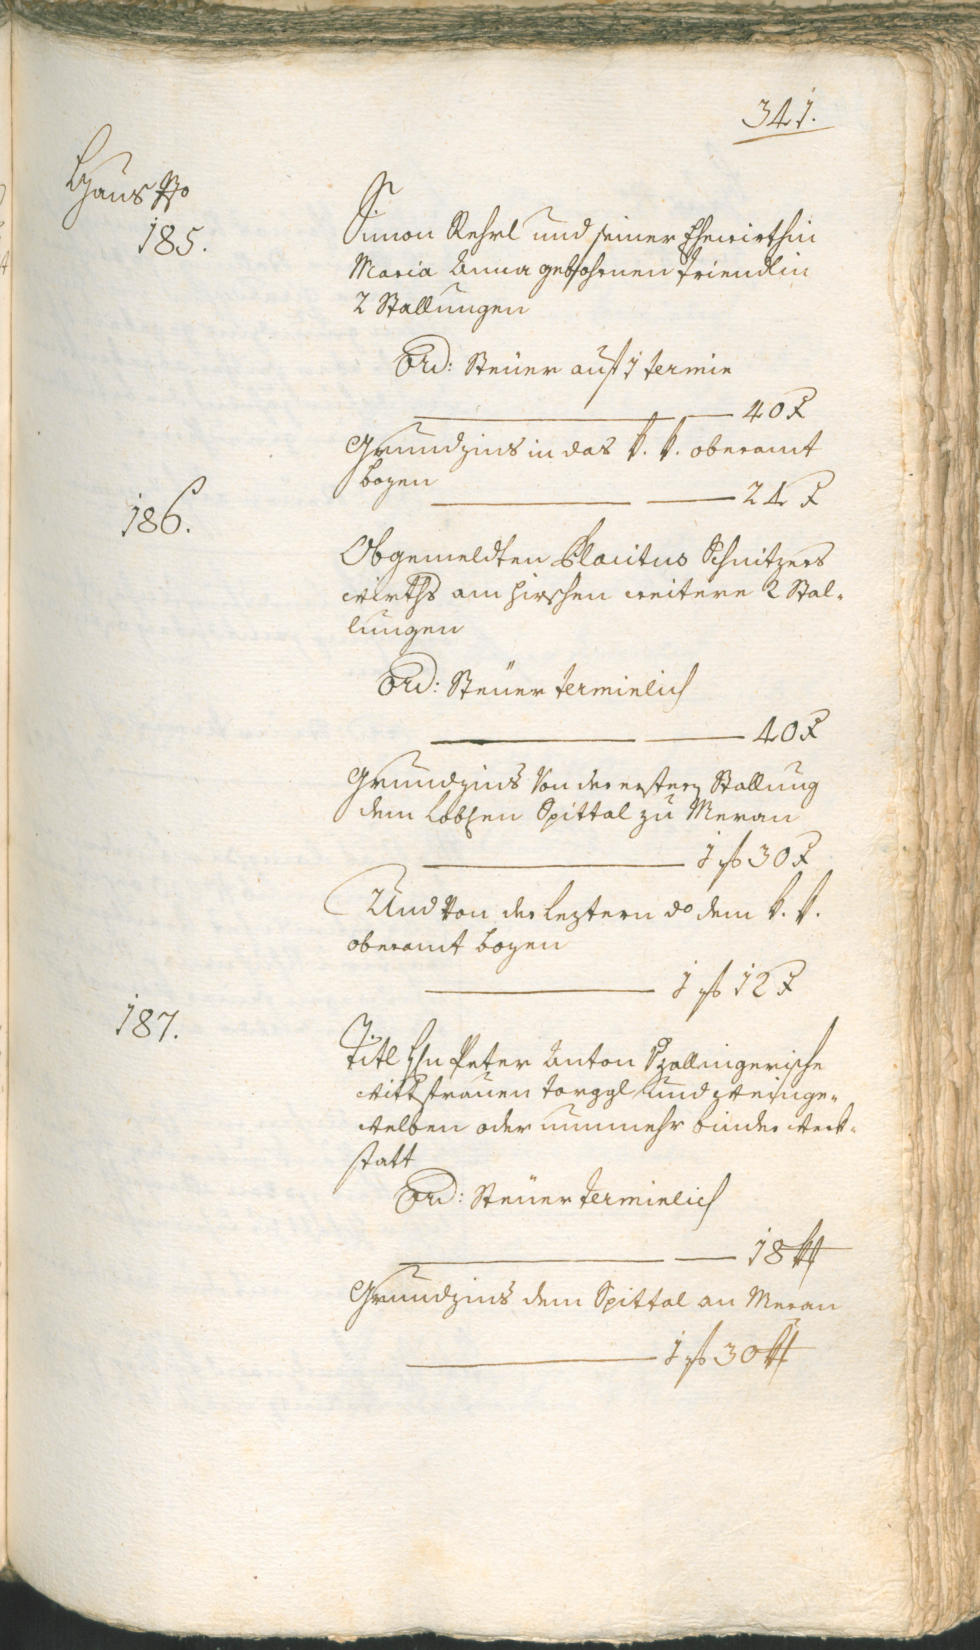 341.
Haus No
185.
Simon Rehrl und seiner Ehewirthin
Maria Anna gebohrnen Friendlin
2 Stallungen
Ord: Steüer auf 1 termin
40 x
Grundzins in das k. k. oberamt
bozen
24 x
186.
Obgemeldten Placitus Schnitzers
wirths am Hirschen weitere 2 Stal-
lungen
Ord: Steüer terminlich
40 x
Grundzins Von der erstern Stallung
dem Lobhen Spittal zu Meran
1 f 30 x
Und Von der leztern do dem k. k.
oberamt bozen
1 f 12 x
187.
Titl Hn Peter Anton
Wittfrauen Torggl und Weinge-
welben oder nunmehr binder werk-
statt
Ord: Steüer terminlich
18 kr
Grundzins dem Spittal an Meran
1 f 30 kr